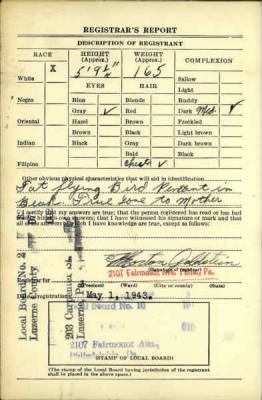 REGISTRAR'S REPORT
DESCRIPTION OF REGISTRANT
RACE HEIGHT (Approx.) WEIGHT (Approx.) COMPLEXION
X 5' 9½" 165
White Sallow
EYES HAIR Light
Negro Blue Blonde Ruddy
Gray ✓ Red Dark Med. ✓
Oriental Hazel Brown Freckled
Brown Black Light brown
Indian Black Gray Dark brown
Bald Black
Filipino Chest. ✓
Other obvious physical characteristics that will aid in identification
Tat flying Bird in
Beak. True love to Mother
I certify that my answers are true; that the person registered has read or has had
read to him his own answers; that I have witnessed his signature or mark and that
all of his answers of which I have knowledge are true, except as follows:
Local Board No. 2
Luzerne County
203 Carpenter
Luzerne, Pa.
(Signature of registrar)
2107 Fairmount Ave. Phila., Pa.
(Precinct) (Ward) (City or county) (State)
Date of registration May 1, 1943.
Local Board No. 10
2107 Fairmount Ave.
Philadelphia, Pa.
(STAMP OF LOCAL BOARD)
(The stamp of the Local Board having jurisdiction of the registrant
shall be placed in the above space.)